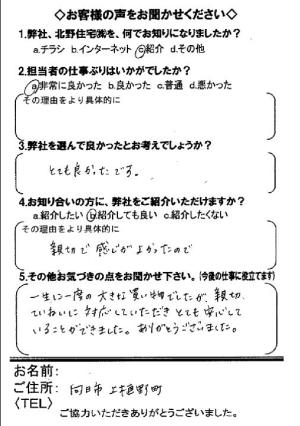 ◇お客様の声をお聞かせください◇
1.弊社、北野住宅㈱を、何でお知りになりましたか?
a.チラシ b.インターネット c.紹介 d.その他
2.担当者の仕事ぶりはいかがでしたか?
a.非常に良かった b.良かった c.普通 d.悪かった
その理由をより具体的に
3.弊社を選んで良かったとお考えでしょうか?
とても良かったです。
4.お知り合いの方に、弊社をご紹介いただけますか?
a.紹介したい b.紹介しても良い c.紹介したくない
その理由をより具体的に
親切で 感じがよかったので
5.その他お気づきの点をお聞かせ下さい。(今後の仕事に役立てます)
一生に一度の大きな買い物でしたが、親切、
ていねいに 対応していただき とても安心して
いることができました。ありがとうございました。
お名前:
ご住所: 向日市 上植野町
〈TEL〉
ご協力いただきありがとうございました。